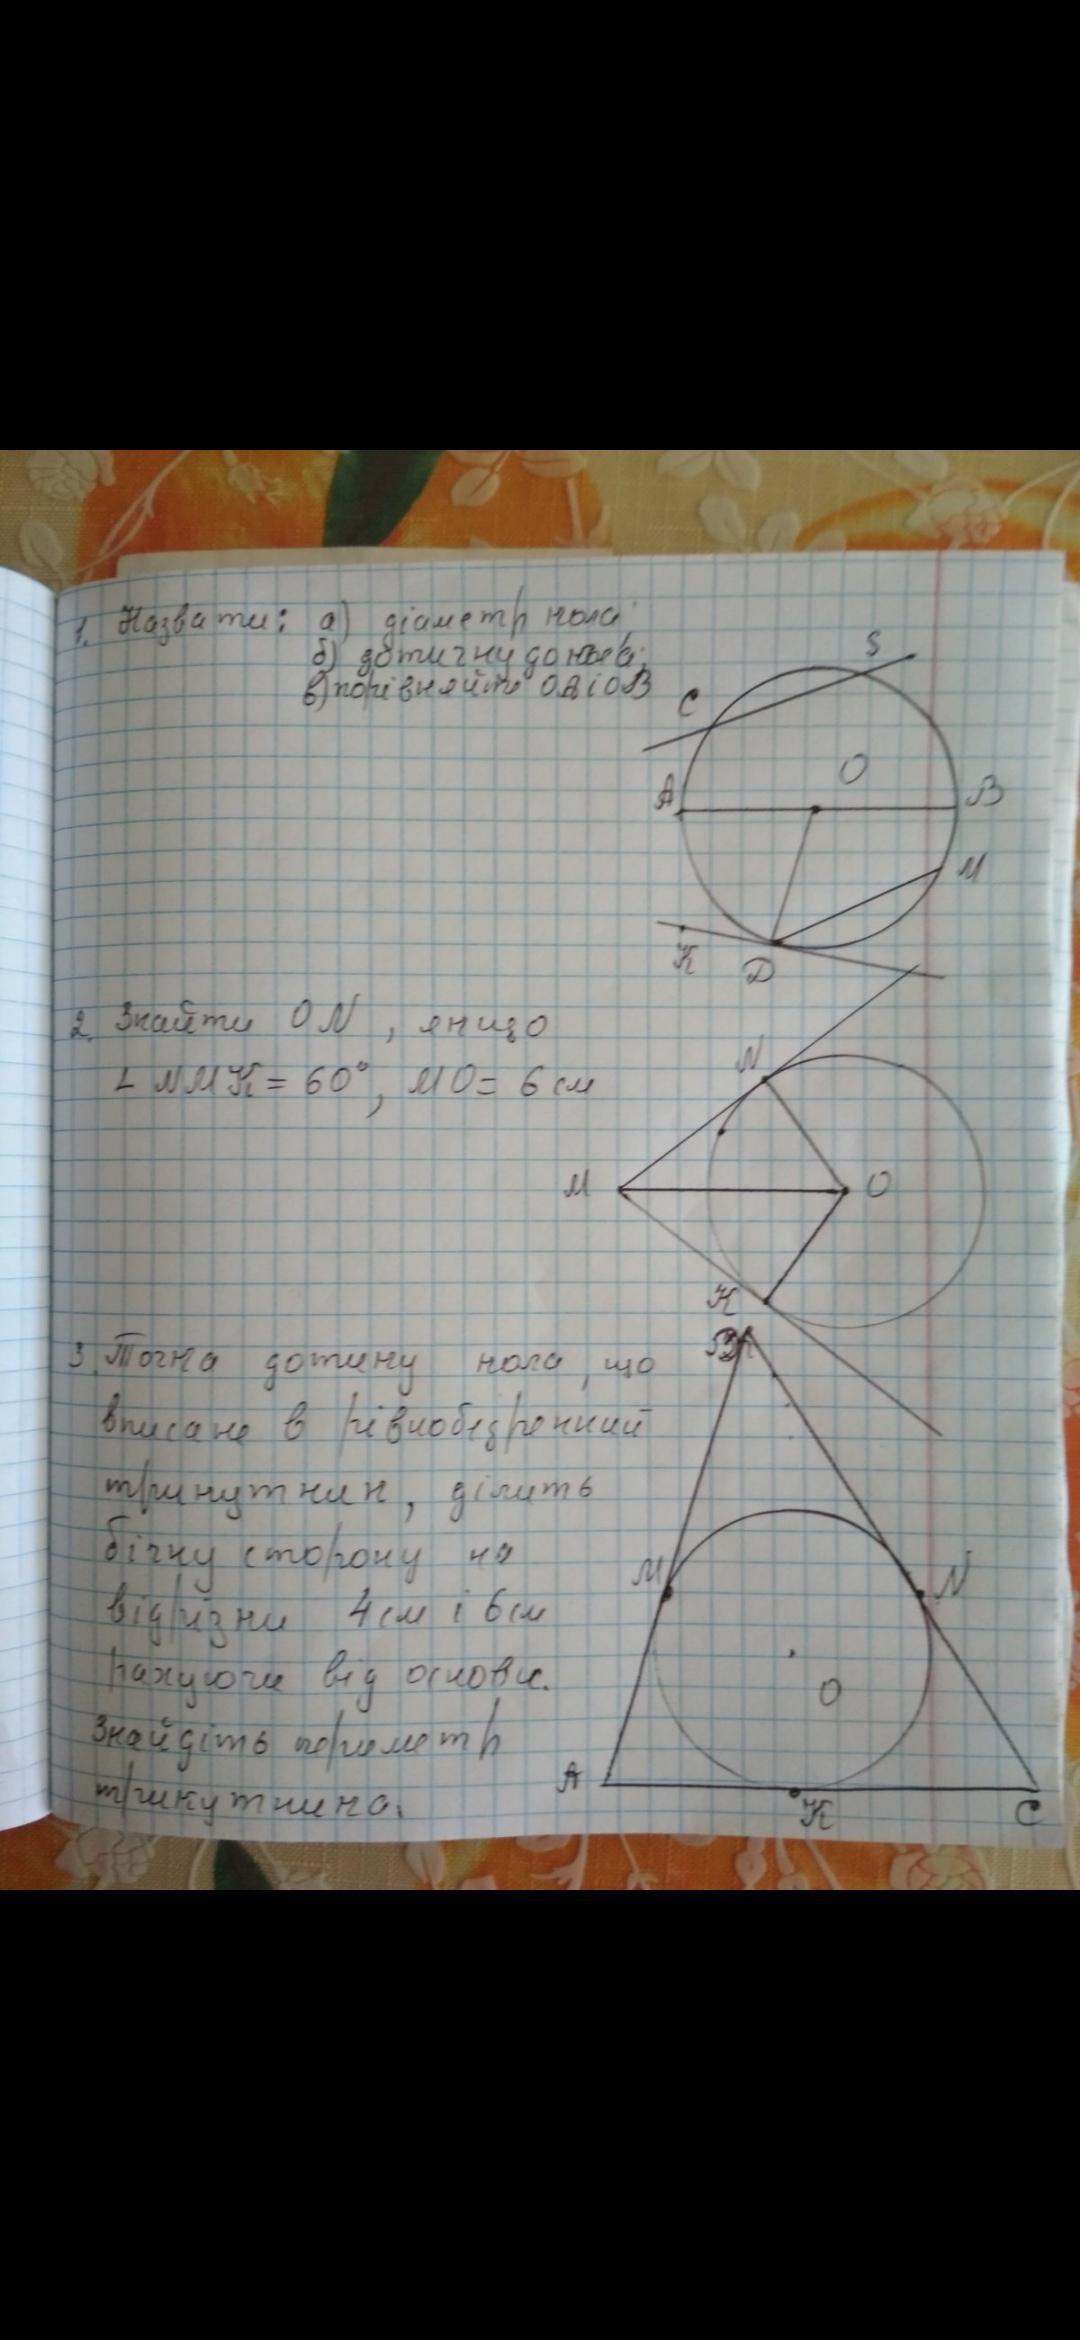 1. Назвати: а) діаметр кола;
б) дотичну до кола;
в) порівняйте ОА і ОВ
S
C
O
A
B
M
K
D
2. Знайти ON, якщо
∠ NMK = 60°, MO = 6 см
N
M
O
K
3. Точка дотику кола, що
вписане в рівнобедренний
трикутник, ділить
бічну сторону на
відрізки 4 см і 6 см
рахуючи від основи.
Знайдіть периметр
трикутника.
B
M
N
O
A
K
C